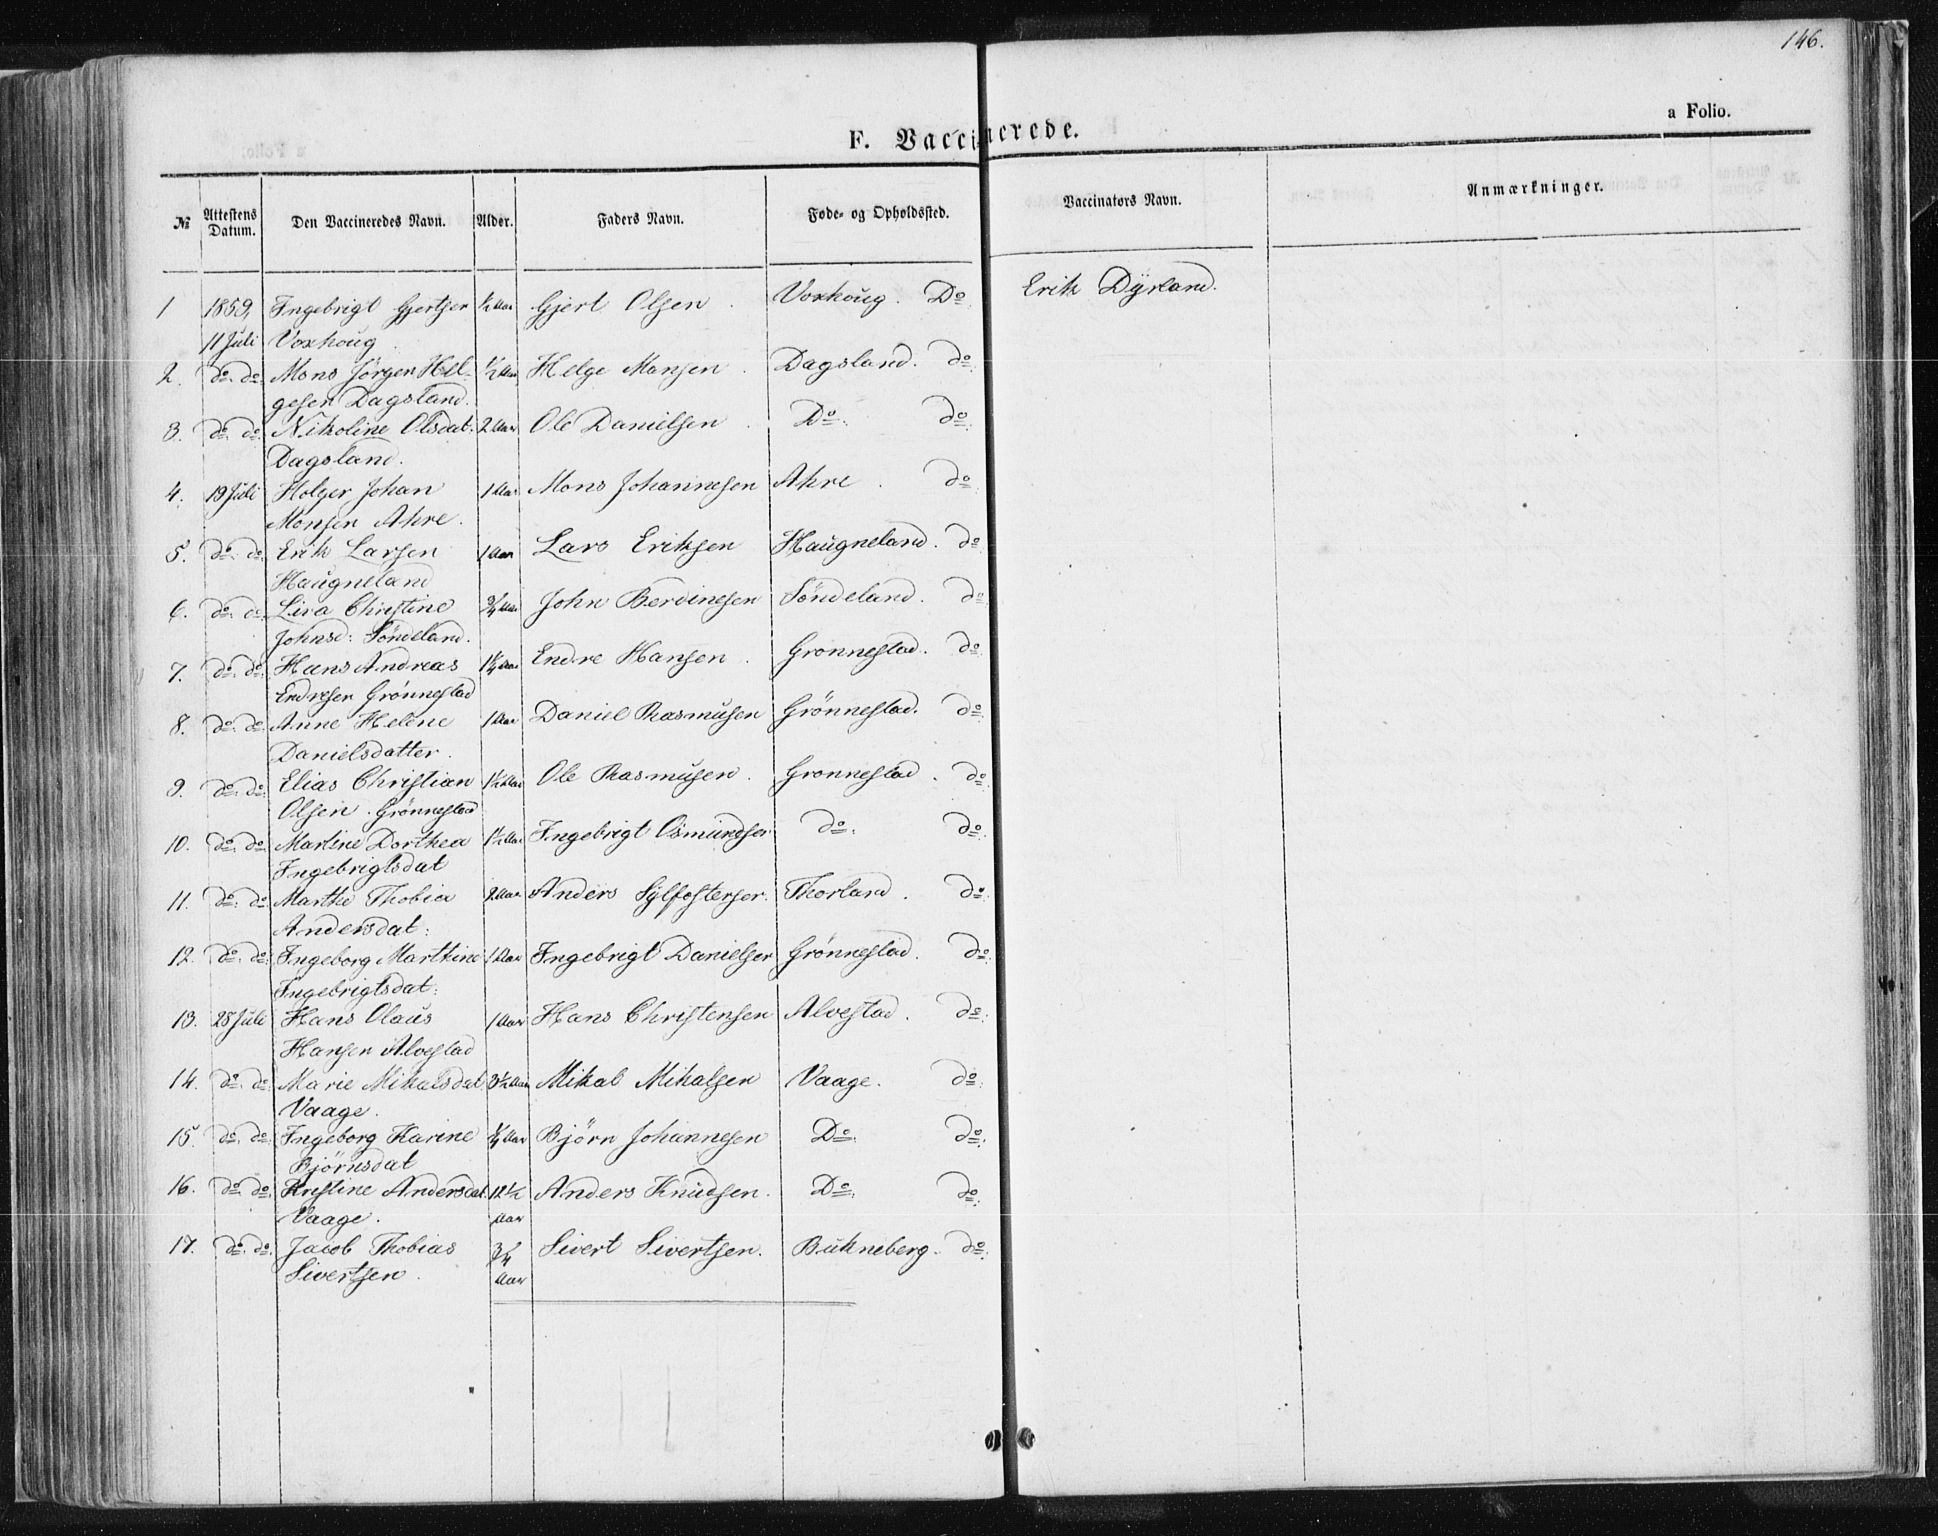 146.
F. Vaccinerede.
a Folio.
№ Attestens Datum. Den Vaccineredes Navn. Alder. Faders Navn. Føde- og Opholdssted. Vaccinators Navn. Anmærkninger.
1 1859, Ingebrigt Gjertsen ½ Aar Gjert Olsen . Voxhoug . Do Erik Dyrland.
11 Juli Voxhoug .
2. do. do. Mons Jörgen Hel- ½ Aar Helge Monsen . Dagsland. do
gesen Dagsland.
3. do. do. Nikoline Olsdat. 2 Aar Ole Danielsen . Do. do
Dagsland.
4. 19 Juli Holger Johan 1 Aar Mons Johannesen Ahre . do
Monsen Ahre.
5. do. do. Erik Larsen 1 Aar Lars Eriksen Haugneland. do
Haugneland
6. do. do. Lisa Christine ¾ Aar John Berdinesen Söndeland. do
Johnsd: Söndeland.
7. do. do. Hans Andreas 1¼ Aar Endre Hansen . Gronnestad. do
Endresen Grönnestad
8. do. do. Anne Helene 1 Aar Daniel Rasmusen Grönnestad. do
Danielsdatter.
9. do. do. Elias Christian 1½ Aar Ole Rasmusen. Gronnestad . do
Olsen . Grönnestad
10. do. do. Martine Dorthea 1½ Aar Ingebrigt Osmundsen do. do.
Ingebrigtsdat
11. do. do. Marthe Thobia 2 Aar Anders Sylfestersen. Thorland . do
Andersdat:
12. do. do. Ingeborg Marthine 1 Aar Ingebrigt Danielsen Grönnestad. do
Ingebrigtsdat:
13. 28 Juli Hans Olaus 1 Aar Hans Christensen Alvestad . do.
Hansen Alvestad
14. do. do. Marie Mikalsdat. 3½ Aar Mikal Mikalsen Vaage. do.
Vaage.
15. do. do. Ingeborg Karine ¼ Aar Björn Johannesen Do. do.
Björnsdat
16. do. do. Kristine Andersdat 12½ Anders Knudsen. Do. do.
Vaage. Aar
17. do. do. Jacob Thobias ¾ Sivert Sivertsen. Bukneberg. do.
Sivertsen . Aar